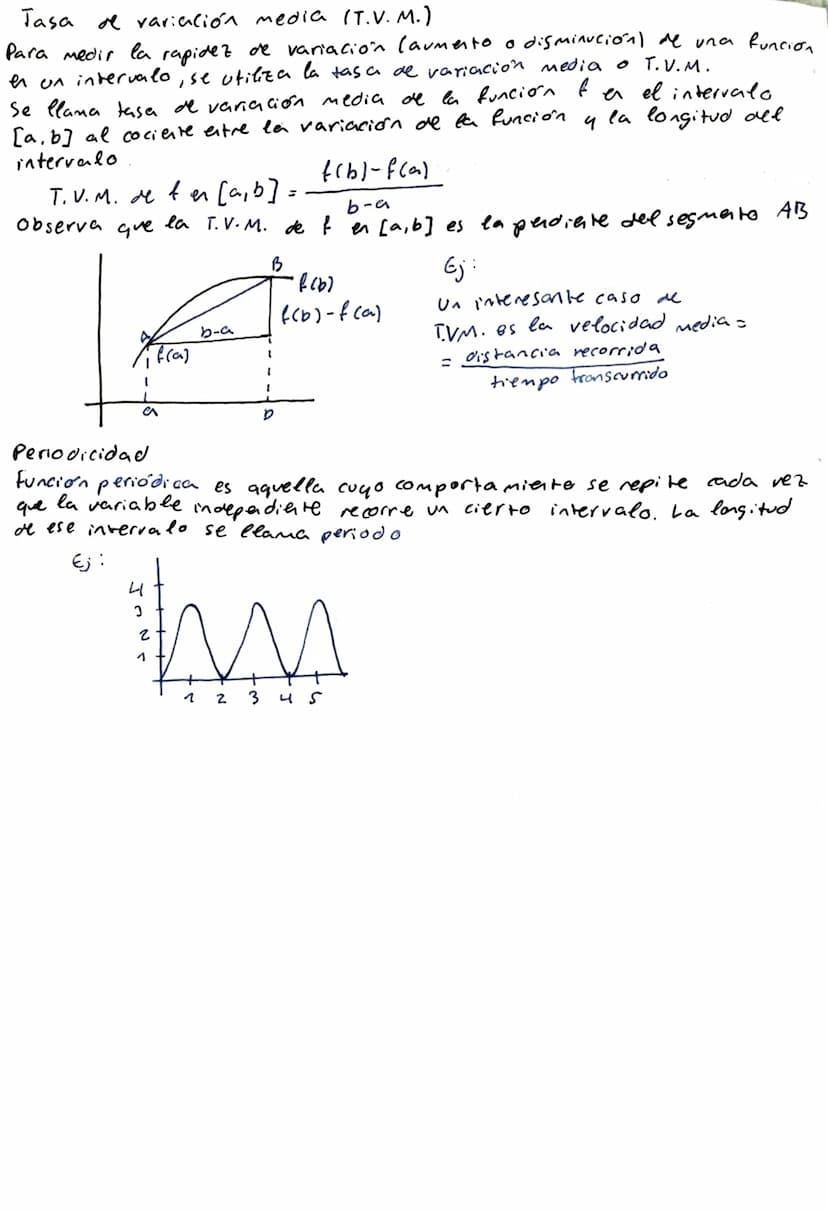 Tasa de variación media (T.V.M.)
Para medir la rapidez de variación (aumento o disminución) de una función
en un intervalo, se utiliza la tasa de variación media o T.V.M.
Se llama tasa de variación media de la función f en el intervalo
[a,b] al cociente entre la variación de la función y la longitud del
intervalo
T.V.M. de f en [a,b] = f(b)-f(a) / b-a
Observa que la T.V.M. de f en [a,b] es la pendiente del segmento AB
B
f(b)
f(b)-f(a)
A
b-a
f(a)
a
b
Ej:
Un interesante caso de
T.V.M. es la velocidad media =
= distancia recorrida
tiempo transcurrido
Periodicidad
Función periódica es aquella cuyo comportamiento se repite cada vez
que la variable independiente recorre un cierto intervalo. La longitud
de ese intervalo se llama periodo
Ej:
4
3
2
1
1 2 3 4 5